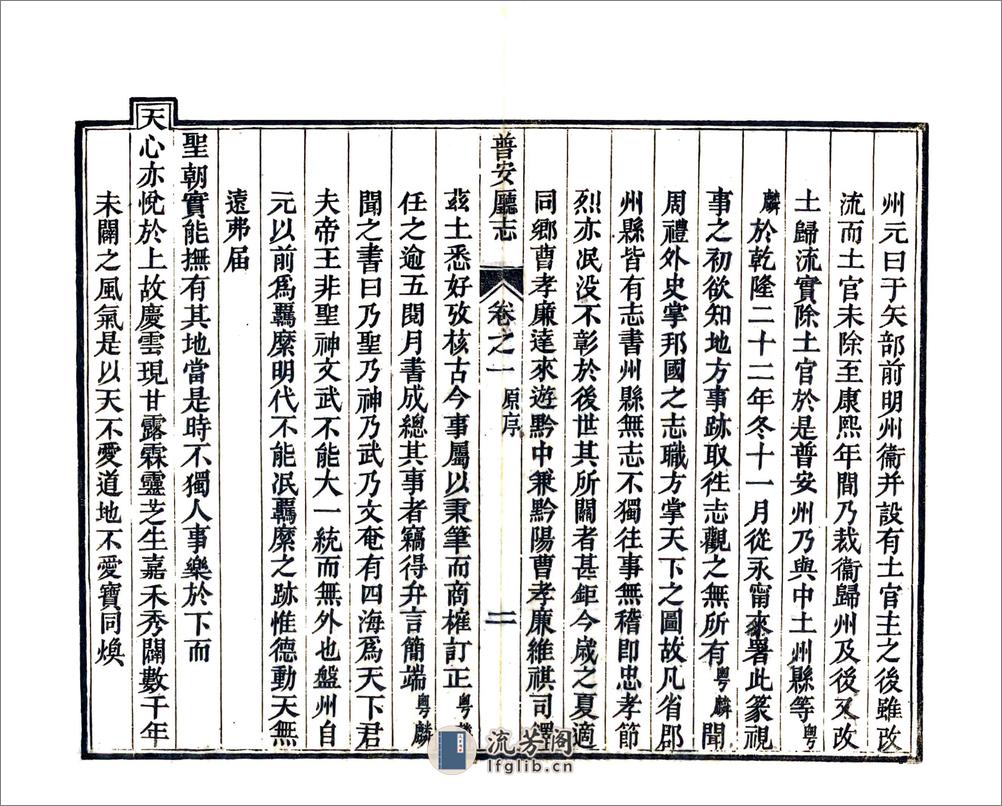 州元曰于矢部前明州衞并設有土官主之後雖改
流而土官未除至康熙年間乃裁衞歸州及後又改
土歸流實除土官於是普安州乃與中土州縣等粵
麟於乾隆二十二年冬十一月從永甯來署此篆視
事之初欲知地方事跡取徃志觀之無所有粵麟聞
周禮外史掌邦國之志職方掌天下之圖故凡省郡
州縣皆有志書州縣無志不獨往事無稽即忠孝節
烈亦泯没不彰於後世其所關者甚鉅今歲之夏適
同鄉曹孝廉達來遊黔中兼黔陽曹孝廉維祺司鐸
普安廳志 卷之一 原序 二
茲土悉好攷核古今事屬以秉筆而商榷訂正粵
任之逾五閱月書成總其事者竊得弁言簡端粵麟
聞之書曰乃聖乃神乃武乃文奄有四海爲天下君
夫帝王非聖神文武不能大一統而無外也盤州自
元以前爲羈縻明代不能泯羈縻之跡惟德動天無
遠弗届
聖朝實能撫有其地當是時不獨人事樂於下而
天心亦悅於上故慶雲現甘露霖靈芝生嘉禾秀闢數千年
未闢之風氣是以天不愛道地不愛寶同煥
流芳阁
lfglib.cn